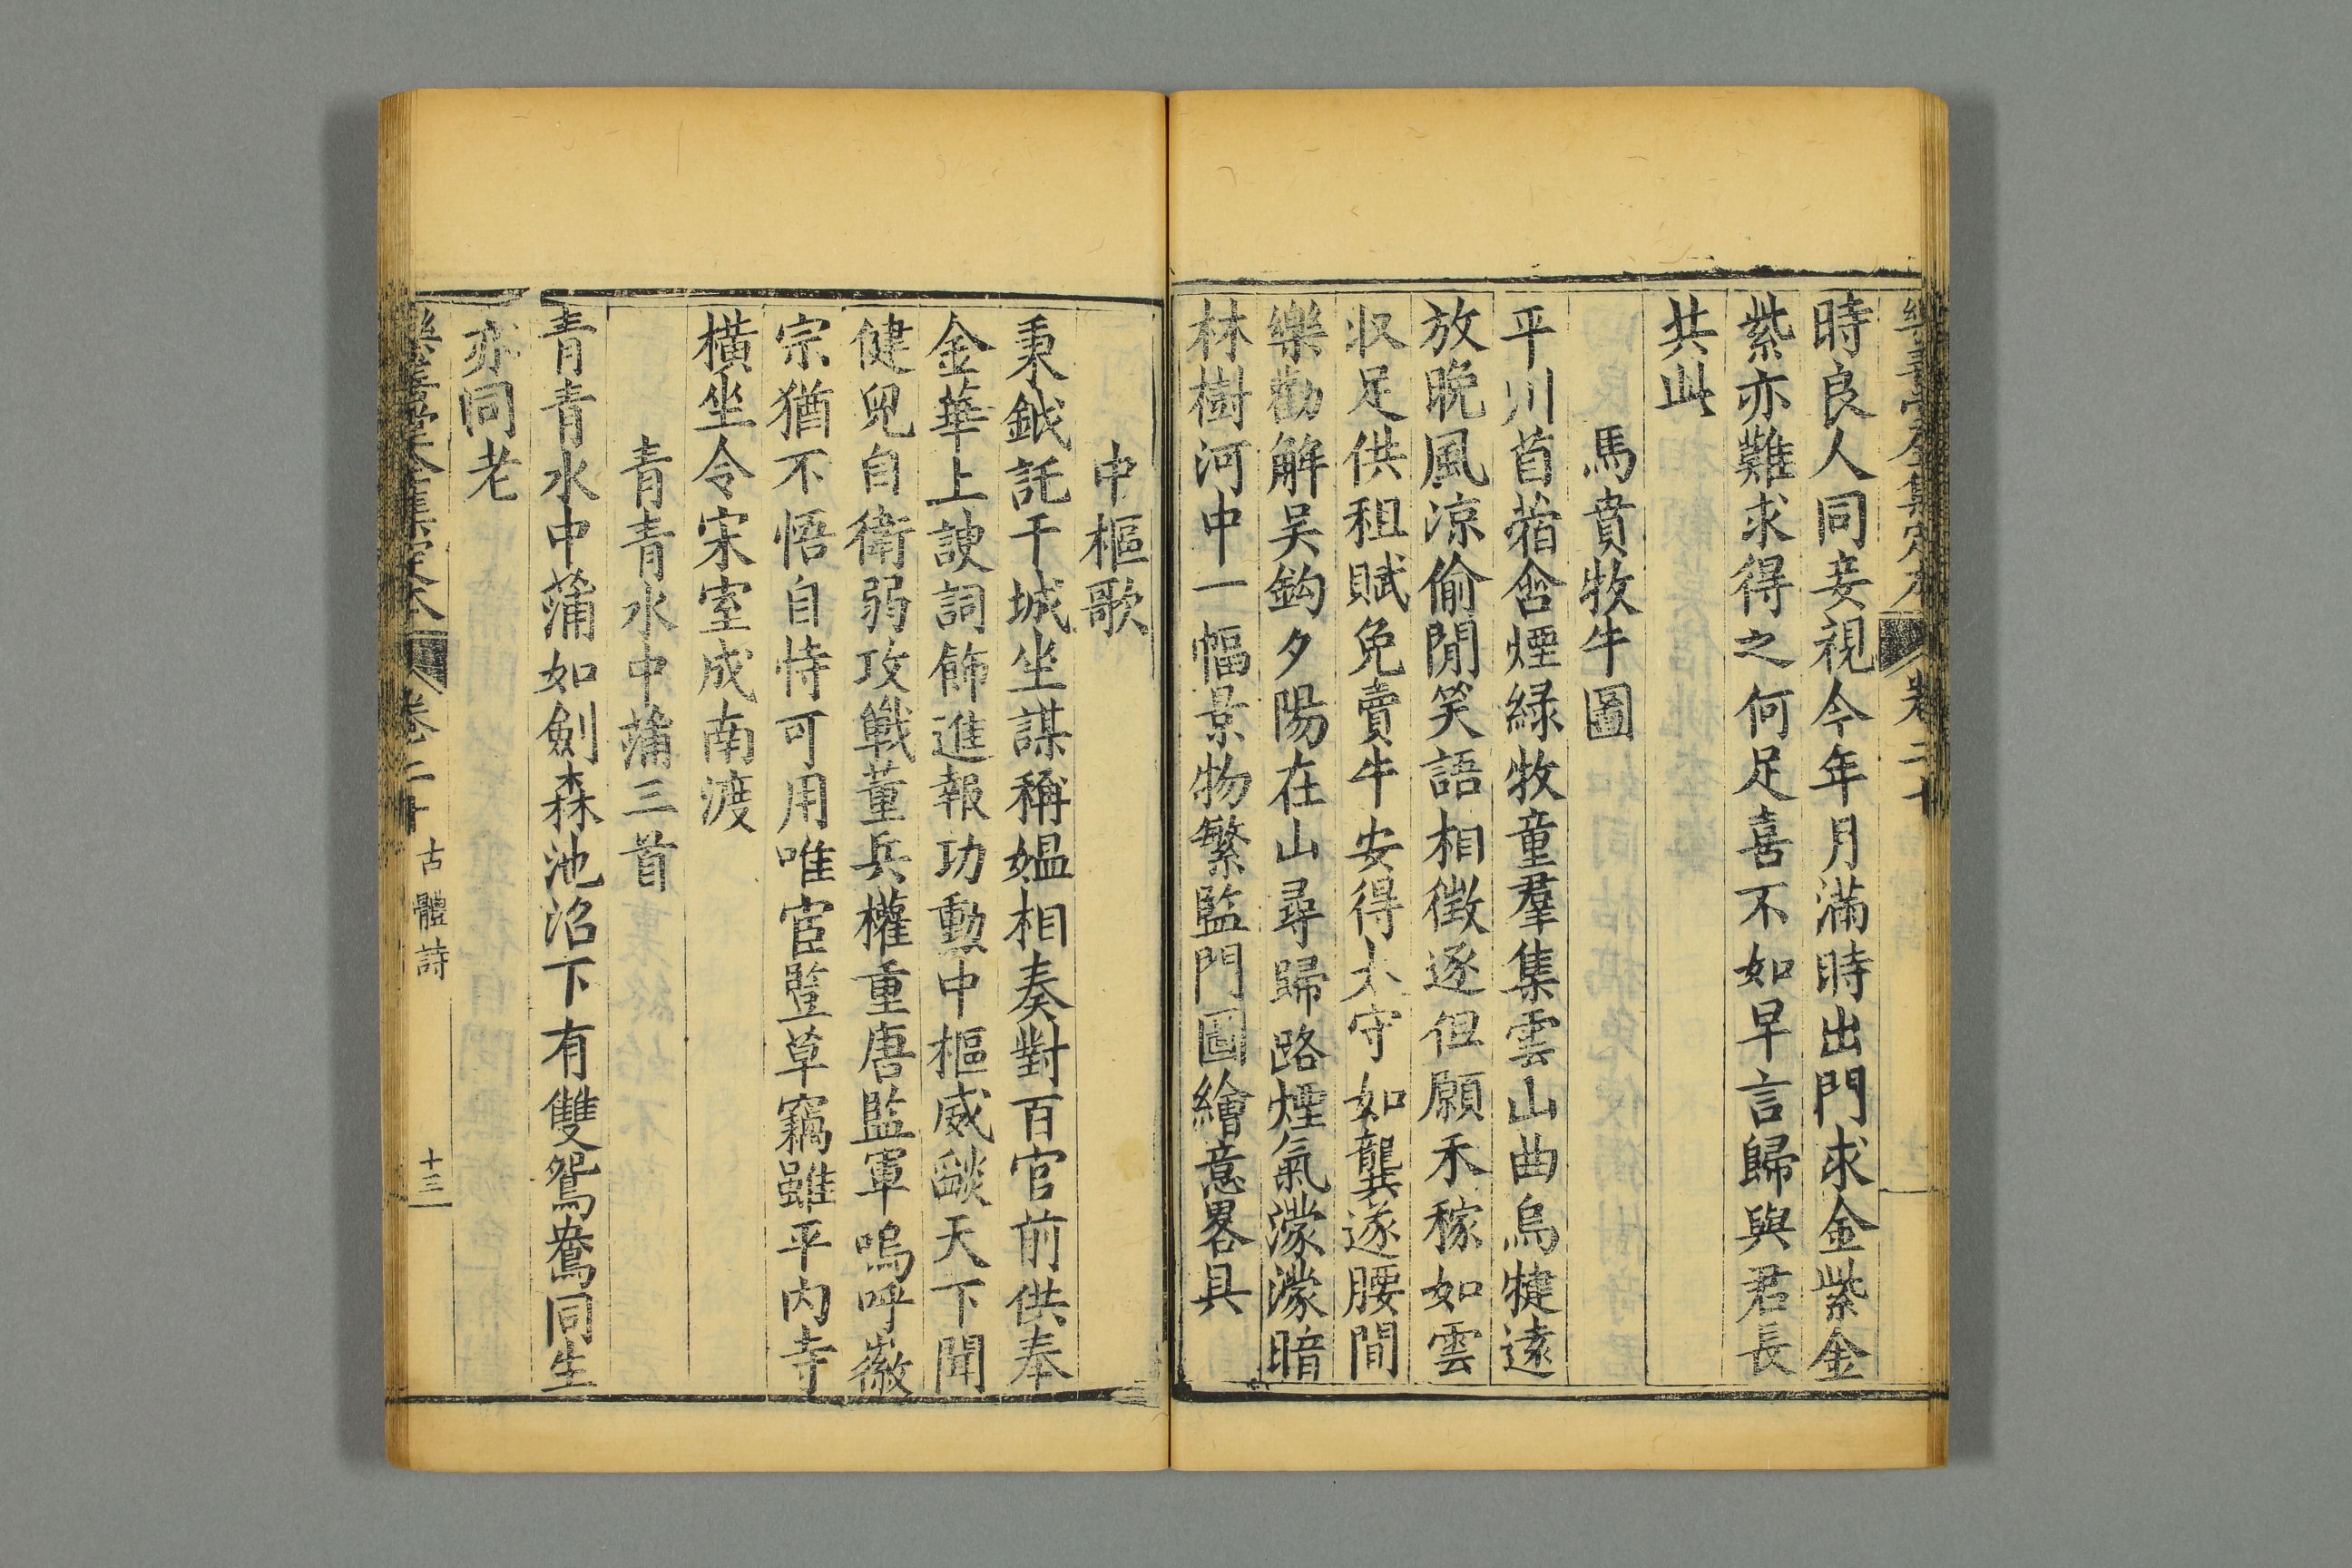 樂善堂全集定本 卷二十
時良人同妾視今年月滿時出門求金紫金
紫亦難求得之何足喜不如早言歸與君長
共此
馬賁牧牛圖
平川苜蓿含煙綠牧童羣集雲山曲烏犍遠
放晚風涼偷閒笑語相徵逐但願禾稼如雲
収足供租賦免賣牛安得太守如龔遂腰間
樂勸解吴鈎夕陽在山尋歸路煙氣濛濛暗
林樹河中一幅景物繁監門圖繪意畧具
中樞歌
秉鉞託干城坐謀稱媪相奏對百官前供奉
金華上諛詞飾進報功動中樞威燄天下聞
健兒自衛弱攻戰董兵權重唐監軍嗚呼徽
宗猶不悟自恃可用唯宦豎草竊雖平內寺
橫坐令宋室成南渡
青青水中蒲三首
青青水中蒲如劍森池沼下有雙鴛鴦同生
亦同老
樂善堂全集定本 卷二十 古體詩 十三